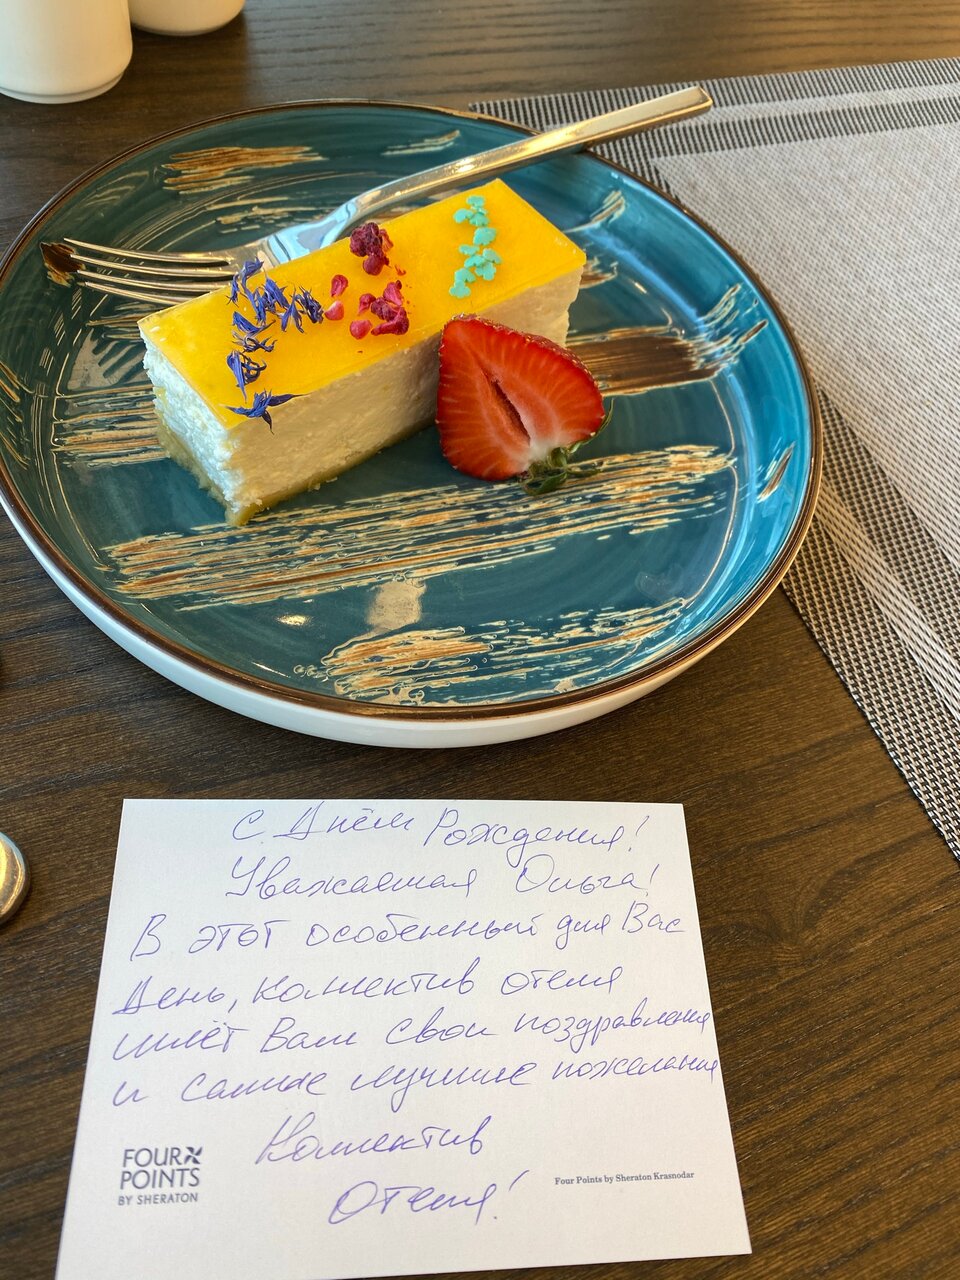 С Днём Рождения!
Уважаемая Ольга!
В этот особенный для Вас
День, коллектив отеля
шлёт Вам свои поздравления
и самые лучшие пожелания
Коллектив
Отеля!
FOUR
POINTS
BY SHERATON
Four Points by Sheraton Krasnodar